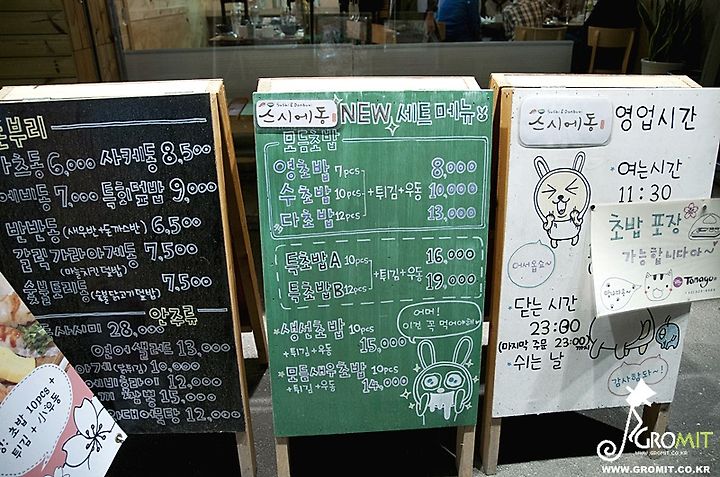 돈부리
가츠동 6,000 사케동 8,500
에비동 7,000 특회덮밥 9,000
반반동 (새우반+돈까스반) 6,500
갈릭 가라아게동 7,500
(마늘치킨덮밥)
숯불토리동 (숯불닭고기덮밥) 7,500
안주류
사시미 28,000
연어샐러드 13,000
10,000
에비후라이 12,000
15,000
오뎅탕 12,000
초밥 10pcs +
튀김 + 우동
Sushi & Donburi
스시에동
NEW 세트 메뉴
모듬초밥
영초밥 7pcs 8,000
수초밥 10pcs +튀김+우동 10,000
다초밥 12pcs 13,000
특초밥A 10pcs 16,000
+튀김+우동
특초밥B 12pcs 19,000
*생선초밥 10pcs
+튀김+우동 15,000
*모듬새우초밥 10pcs
+튀김+우동 14,000
어머!
이건 꼭 먹어야해!
Sushi & Donburi
스시에동
영업시간
* 여는시간
11:30
어서옵쇼~
초밥 포장
가능합니다아~
Tamago
닫는 시간
23:00
(마지막 주문 23:00)
*쉬는 날
감사합돠~!
GROMIT
WWW.GROMIT.CO.KR
WWW.GROMIT.CO.KR